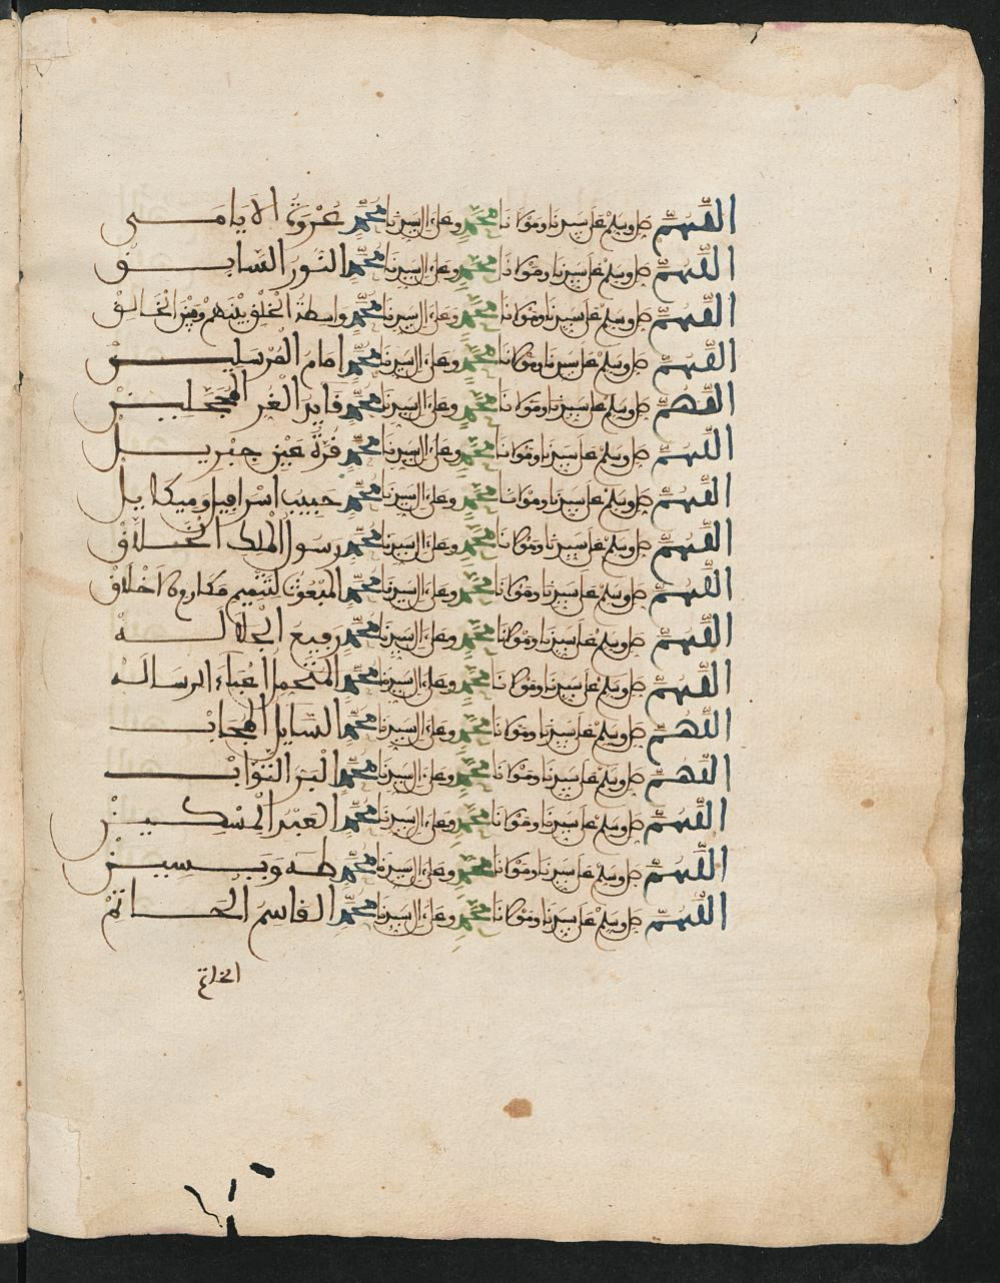 اللهم صل وسلم على سيدنا ومولانا محمد وعلى ال سيدنا محمد عروة الايامى
اللهم صل وسلم على سيدنا ومولانا محمد وعلى ال سيدنا محمد النور السابق
اللهم صل وسلم على سيدنا ومولانا محمد وعلى ال سيدنا محمد واسطة الخلق بينهم وبين الخالق
اللهم صل وسلم على سيدنا ومولانا محمد وعلى ال سيدنا محمد امام المرسلين
اللهم صل وسلم على سيدنا ومولانا محمد وعلى ال سيدنا محمد قايد الغر المحجلين
اللهم صل وسلم على سيدنا ومولانا محمد وعلى ال سيدنا محمد قرة عين جبريل
اللهم صل وسلم على سيدنا ومولانا محمد وعلى ال سيدنا محمد حبيب اسرافيل وميكايل
اللهم صل وسلم على سيدنا ومولانا محمد وعلى ال سيدنا محمد رسول الملك الخلاق
اللهم صل وسلم على سيدنا ومولانا محمد وعلى ال سيدنا محمد المبعوث لتتميم مكارم الاخلاق
اللهم صل وسلم على سيدنا ومولانا محمد وعلى ال سيدنا محمد رفيع الجلالة
اللهم صل وسلم على سيدنا ومولانا محمد وعلى ال سيدنا محمد المتحمل اعباء الرسالة
اللهم صل وسلم على سيدنا ومولانا محمد وعلى ال سيدنا محمد السايل المجاب
اللهم صل وسلم على سيدنا ومولانا محمد وعلى ال سيدنا محمد البر التواب
اللهم صل وسلم على سيدنا ومولانا محمد وعلى ال سيدنا محمد العبد المسكين
اللهم صل وسلم على سيدنا ومولانا محمد وعلى ال سيدنا محمد طه ويسين
اللهم صل وسلم على سيدنا ومولانا محمد وعلى ال سيدنا محمد القاسم الخاتم
الخاتم